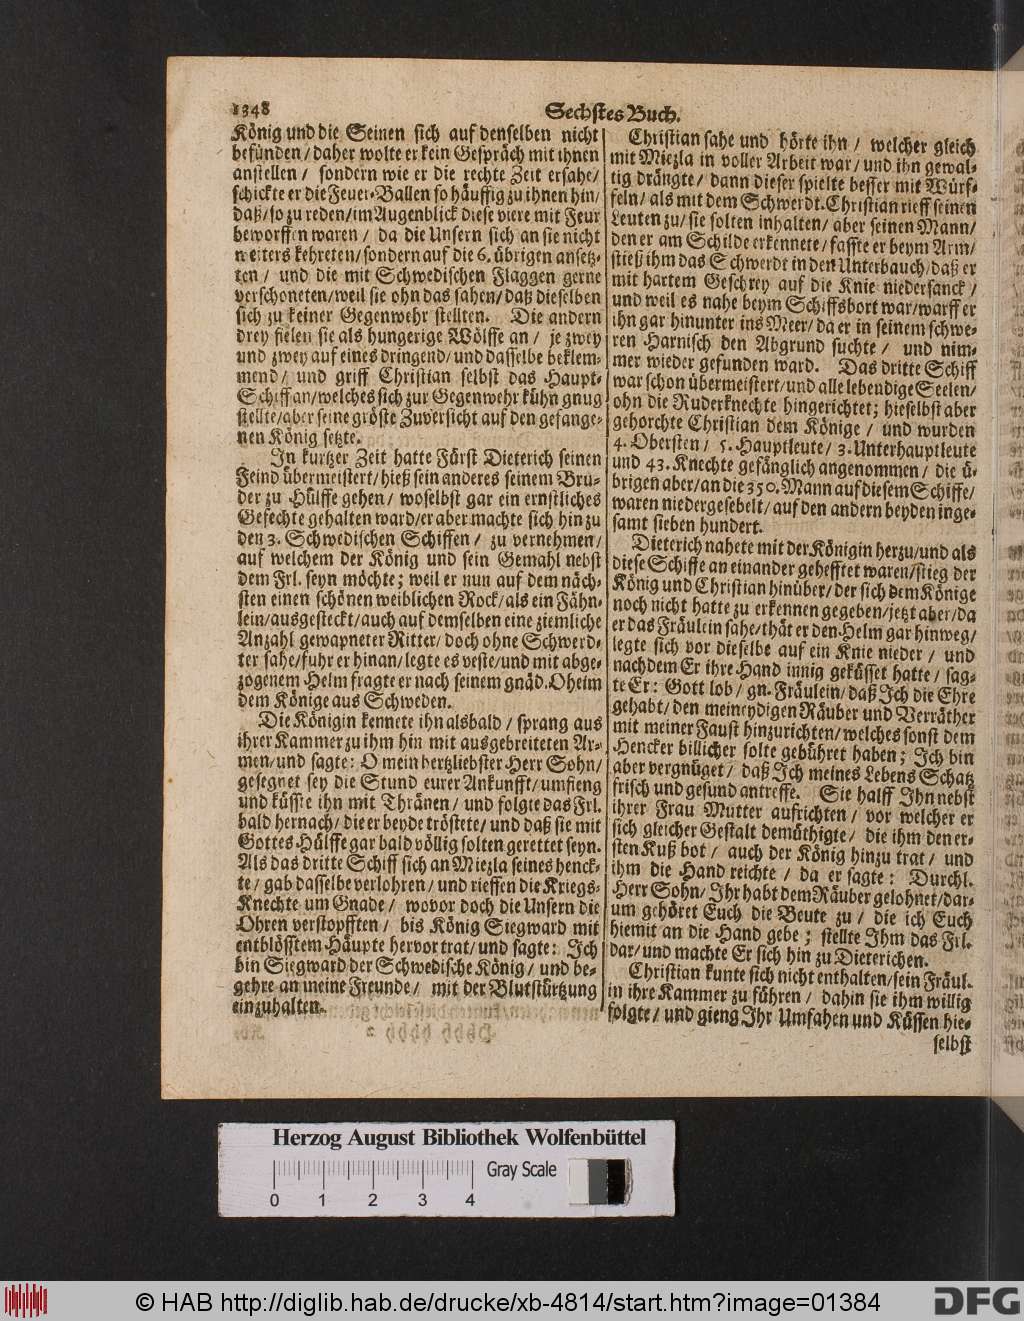 1348
Sechstes Buch.
König und die Seinen sich auf denselben nicht
befünden/ daher wolte er kein Gespräch mit ihnen
anstellen/ sondern wie er die rechte Zeit ersahe/
schickte er die Feuer-Ballen so häuffig zu ihnen hin/
daß/ so zu reden/ im Augenblick diese viere mit Feur
beworffen waren/ da die Unsern sich an sie nicht
weiters kehreten/ sondern auf die 6. übrigen ansetz-
ten/ und die mit Schwedischen Flaggen gerne
verschoneten/ weil sie ohn das sahen/ daß dieselben
sich zu keiner Gegenwehr stellten. Die andern
drey fielen sie als hungerige Wölffe an/ je zwey
und zwey auf eines dringend/ und dasselbe beklem-
mend/ und griff Christian selbst das Haupt-
Schiff an/ welches sich zur Gegenwehr kühn gnug
stellte/ aber seine gröste Zuversicht auf den gefange-
nen König setzte.
In kurtzer Zeit hatte Fürst Dieterich seinen
Feind übermeistert/ hieß sein anderes seinem Bru-
der zu Hülffe gehen/ woselbst gar ein ernstliches
Gefechte gehalten ward/ er aber machte sich hin zu
den 3. Schwedischen Schiffen/ zu vernehmen/
auf welchem der König und sein Gemahl nebst
dem Frl. seyn möchte; weil er nun auf dem näch-
sten einen schönen weiblichen Rock/ als ein Fähn-
lein/ ausgesteckt/ auch auf demselben eine ziemliche
Anzahl gewapneter Ritter/ doch ohne Schwerd-
ter sahe/ fuhr er hinan/ legte es veste/ und mit abge-
zogenem Helm fragte er nach seinem gnäd. Oheim
dem Könige aus Schweden.
Die Königin kennete ihn alsbald/ sprang aus
ihrer Kammer zu ihm hin mit ausgebreiteten Ar-
men/ und sagte: O mein hertzliebster Herr Sohn/
gesegnet sey die Stund eurer Ankunfft/ umfieng
und küsste ihn mit Thränen/ und folgte das Frl.
bald hernach/ die er beyde tröstete/ und daß sie mit
Gottes Hülffe gar bald völlig solten gerettet seyn.
Als das dritte Schiff sich an Miezla seines henck-
te/ gab dasselbe verlohren/ und rieffen die Kriegs-
Knechte um Gnade/ wovor doch die Unsern die
Ohren verstopfften/ bis König Siegward mit
entblösstem Häupte hervor trat/ und sagte: Ich
bin Siegward der Schwedische König/ und be-
gehre an meine Freunde/ mit der Blutstürtzung
einzuhalten.
Christian sahe und hörte ihn/ welcher gleich
mit Miezla in voller Arbeit war/ und ihn gewal-
tig drängte/ dann dieser spielte besser mit Würf-
feln/ als mit dem Schwerdt. Christian rieff seinen
Leuten zu/ sie solten inhalten/ aber seinen Mann/
den er am Schilde erkennete/ fasste er beym Arm/
stieß ihm das Schwerdt in den Unterbauch/ daß er
mit hartem Geschrey auf die Knie niedersanck/
und weil es nahe beym Schiffsbort war/ warff er
ihn gar hinunter ins Meer/ da er in seinem schwe-
ren Harnisch den Abgrund suchte/ und nim-
mer wieder gefunden ward. Das dritte Schiff
war schon übermeistert/ und alle lebendige Seelen/
ohn die Ruderknechte hingerichtet; hieselbst aber
gehorchte Christian dem Könige/ und wurden
4. Obersten/ 5. Hauptleute/ 3. Unterhauptleute
und 43. Knechte gefänglich angenommen/ die ü-
brigen aber/ an die 350. Mann auf diesem Schiffe/
waren niedergesebelt/ auf den andern beyden inge-
samt sieben hundert.
Dieterich nahete mit der Königin herzu/ und als
diese Schiffe an einander gehefftet waren/ stieg der
König und Christian hinüber/ der sich dem Könige
noch nicht hatte zu erkennen gegeben/ jetzt aber/ da
er das Fräulein sahe/ thät er den Helm gar hinweg/
legte sich vor dieselbe auf ein Knie nieder/ und
nachdem Er ihre Hand innig geküsset hatte/ sag-
te Er: Gott lob/ gn. Fräulein/ daß Ich die Ehre
gehabt/ den meineydigen Räuber und Verräther
mit meiner Faust hinzurichten/ welches sonst dem
Hencker billicher solte gebühret haben; Ich bin
aber vergnüget/ daß Ich meines Lebens Schatz
frisch und gesund antreffe. Sie halff Ihn nebst
ihrer Frau Mutter aufrichten/ vor welcher er
sich gleicher Gestalt demüthigte/ die ihm den er-
sten Kuß bot/ auch der König hinzu trat/ und
ihm die Hand reichte/ da er sagte: Durchl.
Herr Sohn/ Ihr habt dem Räuber gelohnet/ dar-
um gehöret Euch die Beute zu/ die ich Euch
hiemit an die Hand gebe; stellte Ihm das Frl.
dar/ und machte Er sich hin zu Dieterichen.
Christian kunte sich nicht enthalten/ sein Fräul.
in ihre Kammer zu führen/ dahin sie ihm willig
folgte/ und gieng Ihr Umfahen und Küssen hie-
selbst
Herzog August Bibliothek Wolfenbüttel
Gray Scale
0 1 2 3 4
© HAB http://diglib.hab.de/drucke/xb-4814/start.htm?image=01384
DFG